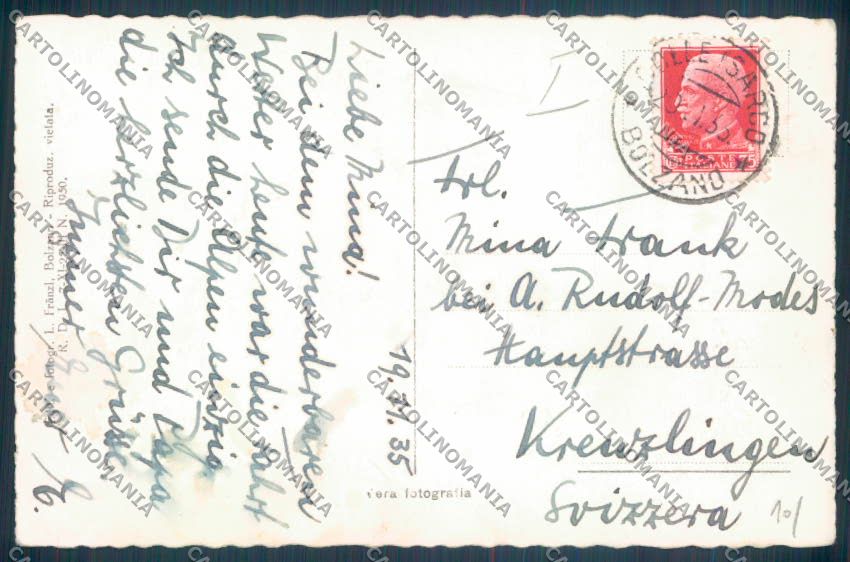 Liebe Mina!
Bei dem wunderbaren
Wetter heute war die Fahrt
durch die Alpen einzig
Ich sende Dir und Papa
die herzlichsten Grüsse
Immer
19.11.35
Frl.
Mina Frank
bei A. Rudolf-Modes
Hauptstrasse
Kreuzlingen
Svizzera
10/
COLLE ISARCO
BOLZANO
POSTE
ITALIANE
75
Vera fotografia
fotogr. L. Fränzl, Bolzano - Riproduz. vietata.
R. D. L. 7-XI-25 N. 1950.
CARTOLINOMANIA